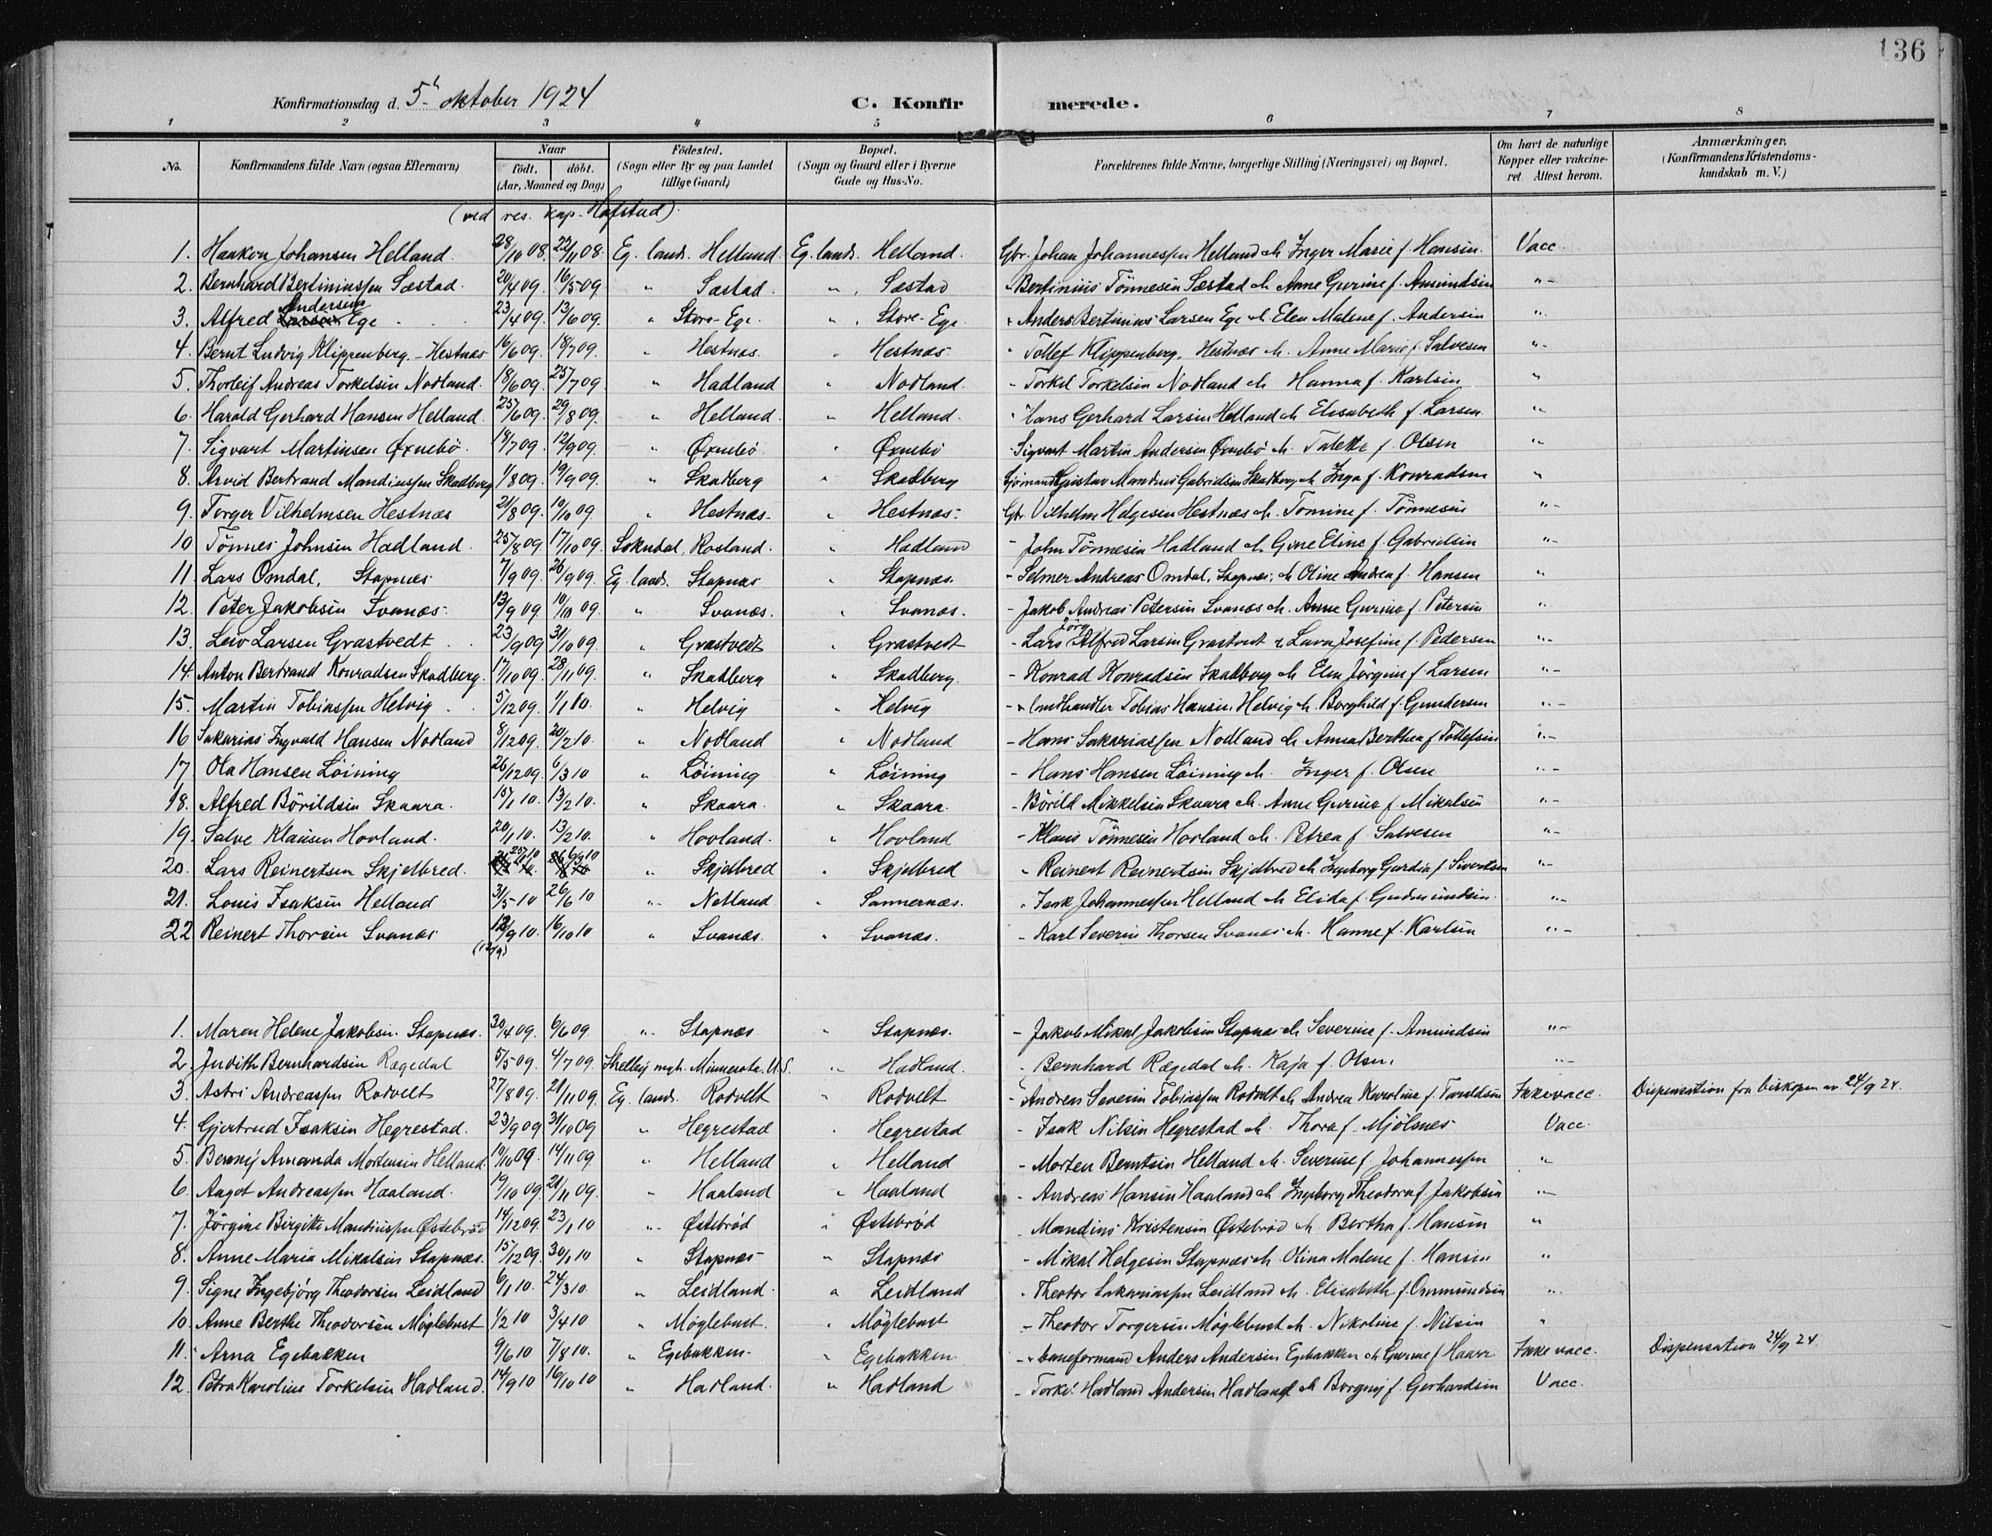 136
Konfirmationsdag d. 5. oktober 1924 C. Konfirmerede.
1 2 3 4 5 6 7 8
No. Konfirmandens fulde Navn (ogsaa Efternavn) Naar født. døbt. (Aar, Maaned og Dag) Fødested. (Sogn eller By og paa Landet tillige Gaard) Bopæl. (Sogn og Gaard eller i Byerne Gade og Hus-No. Forældrenes fulde Navne, borgerlige Stilling (Næringsvei) og Bopæl. Om havt de naturlige Kopper eller vakcineret. Attest herom. Anmærkninger. (Konfirmandens Kristendomskundskab m. V.)
(ved res. kap. Hofstad).
1. Haakon Johansen Helland. 28/10 08. 22/11 08. Eg. lands. Helland. Eg. lands. Helland. Gbr. Johan Johannessen Helland o h. Inger Marie f. Hansen. Vacc.
2. Bernhard Bertiniussen Sæstad. 20/4 09. 16/5 09 " Sæstad. " Sæstad - Bertinius Tønnesen Sæstad o h. Anne Gurine f. Amundsen "-
3. Alfred Larsen Andersen Ege 23/4 09. 13/6 09. " Store-Ege. " Store-Ege. " Anders Bertinius Larsen Ege o h. Elen Malene f. Andersen "-
4. Bernt Ludvig Klippenberg-Hestnæs 16/6 09. 18/7 09. " Hestnæs. " Hestnæs - Tollef Klippenberg, Hestnæs o h. Anne Marie f. Salvesen "-
5. Thorleif Andreas Torkelsen Nodland. 18/6 09. 25/7 09. " Hadland " Nodland. - Torkel Torkelsen Nodland o h. Hanna f. Karlsen "
6. Harald Gerhard Hansen Helland. 25/6 09. 29/8 09. " Helland. " Helland. - Hans Gerhard Larsen Helland o h. Elisabeth f. Larsen "-
7. Sigvart Martinsen Øxnebø 14/7 09. 12/9 09. " Øxnebø " Øxnebø - Sigvart Martin Andersen Øxnebø o h. Talette f. Olsen "
8. Arvid Bertrand Mandiussen Skadberg 1/8 09. 19/9 09. " Skadberg " Skadberg Sjømand Gustav Mandius Gabrielsen Skadberg o h. Inga f. Konradsen "
9. Torger Vilhelmsen Hestnæs 21/8 09. 10/10 09. " Hestnæs. " Hestnæs. Gbr. Vilhelm Helgesen Hestnæs o h. Tomine f. Tønnesen "-
10 Tønnes Johnsen Hadland. 25/8 09. 17/10 09. Sokndal, Rosland. " Hadland - John Tønnesen Hadland o h. Gine Eline f. Gabrielsen "-
11. Lars Omdal, Stapnæs 7/9 09. 26/9 09. Eg. lands. Stapnæs " Stapnæs. - Selmer Andreas Omdal, Stapnæs, o h. Oline Andrea f. Hansen "-
12. Peter Jakobsen Svanæs. 13/9 09. 10/10 09. " Svanæs. " Svanæs. - Jakob Andreas Petersen Svanæs o h. Anne Gurine f. Petersen "-
13. Leiv Larsen Grastvedt 23/9 09 31/10 09. " Grastvedt " Grastvedt - Lars Alfred Larsen Grastvedt Josefine f. Pedersen "-
14. Anton Bertrand Konradsen Skadberg. 17/10 09. 28/11 09. " Skadberg " Skadberg. - Konrad Konradsen Skadberg o h. Elen Jørgine f. Larsen "-
15. Martin Tobiassen Helvig 5/12 09. 1/1 10. " Helvig " Helvig - Landhandler Tobias Hansen, Helvig o h. Borghild f. Gundersen "-
16 Sakarias Ingvald Hansen Nodland 8/12 09. 20/2 10. " Nodland " Nodland - Hans Sakariassen Nodland o h. Anna Berthea f. Tollefsen "-
17. Ola Hansen Løining 26/12 09. 6/3 10 " Løining " Løining - Hans Hansen Løining o h. Inger f. Olsen "-
18. Alfred Børildsen Skaara. 15/1 10. 13/2 10. " Skaara. " Skaara. - Børild Mikkelsen Skaara o h. Anne Gurine f. Mikalsen "-
19. Salve Klausen Hovland. 20/1 10. 13/2 10. " Hovland. " Hovland - Klaus Tønnesen Hovland o h. Petrea f. Salvesen "-
20. Lars Reinertsen Skjelbred. " Skjelbred " Skjelbred - Reinert Reinertsen Skjelbred o h. Ingeborg Gurdia f. Sivertsen "-
21. Louis Isaksen Helland 31/5 10 26/6 10 " Netland " Sannernæs. - Isak Johannessen Helland o h. Elida f. Gudmundsen "-
22. Reinert Thorsen Svanæs 12/9 10. 16/10 10 " Svanæs. " Svanæs. - Karl Severin Thorsen Svanæs o h. Hanne f. Karlsen "-
(12/9)
1. Maren Helene Jakobsen Stapnæs. 30/4 09. 6/6 09. " Stapnæs " Stapnæs. - Jakob Mikal Jakobsen Stapnæs o h. Severine f. Amundsen "-
2. Judith Bernhardsen Rægedal 5/5 09. 4/7 09. Minnesota. U.S. " Hadland. - Bernhard Rægedal o h. Kaja f. Olsen. "-
3. Astri Andreassen Rodvelt 27/8 09. 21/11 09. Eg. lands. Rodvelt " Rodvelt - Andreas Severin Tobiassen Rodvelt o h. Andrea Karoline f. Taraldsen Ikke vacc. Dispensation fra biskopen av 24/9 24.
4. Gjertrud Isaksen Hegrestad. 23/9 09 31/10 09 " Hegrestad " Hegrestad - Isak Nilsen Hegrestad o h. Thora f. Mjølsnes Vacc.
5. Bermij Amanda Mortensen Helland 10/10 09. 14/11 09. " Helland " Helland - Morten Berntsen Helland o h. Severine f. Johannessen "
6. Aagot Andreassen Haaland. 19/10 09 21/11 09. " Haaland " Haaland - Andreas Hansen Haaland o h. Ingeborg Theodora f. Jakobsen "-
7. Jørgine Birgitte Mandiussen Østebrød 14/12 09. 23/1 10 " Østebrød " Østebrød - Mandius Kristensen Østebrød o h. Bertha f. Hansen "
8. Anne Maria Mikalsen Stapnæs. 15/12 09. 30/1 10 " Stapnæs " Stapnæs - Mikal Helgesen Stapnæs o h. Olina Malene f. Hansen "
9. Signe Ingebjørg Theodorsen Leidland 6/1 10. 24/3 10. " Leidland. " Leidland - Theodor Sakariassen Leidland o h. Elisabeth f. Ommundsen "
10. Anne Berthe Theodorsen Møglebust 1/2 10 3/4 10 " Møglebust. " Møglebust - Theodor Torgersen Møglebust o h. Nikoline f. Nilsen "
11. Arna Egebakken 9/6 10 7/8 10. " Egebakken " Egebakken - baneformand Anders Andersen Egebakken o h. Gurine f. Haar Ikke vacc. Dispensation 24/9 24.
12. Petra Karoline Torkelsen Hadland. 14/9 10 16/10 10 " Hadland. " Hadland - Torkel Hadland Andersen Hadland o h. Borgny f. Gerhardsen Vacc.